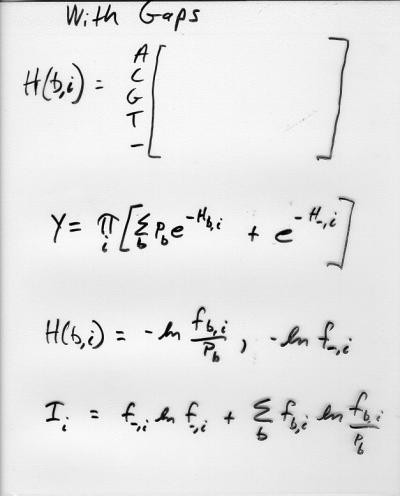 With Gaps
H(b,i) = A C G T - [ ]
Y = π_i [ Σ_b P_b e^{-H_{b,i}} + e^{-H_{-,i}} ]
H(b,i) = -ln f_{b,i}/P_b , -ln f_{-,i}
I_i = f_{-,i} ln f_{-,i} + Σ_b f_{b,i} ln f_{b,i}/P_b